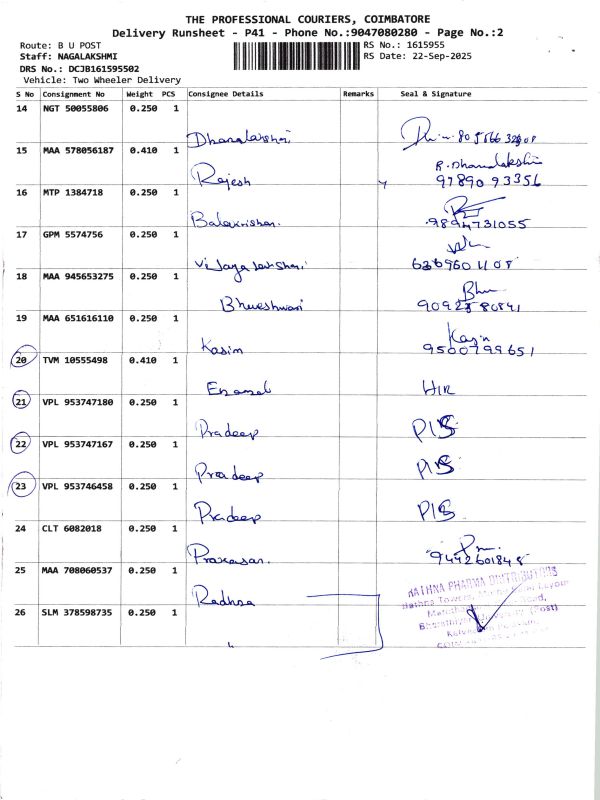 THE PROFESSIONAL COURIERS, COIMBATORE
Delivery Runsheet - P41 - Phone No.:9047080280 - Page No.:2
Route: B U POST RS No.: 1615955
Staff: NAGALAKSHMI RS Date: 22-Sep-2025
DRS No.: DCJB161595502
Vehicle: Two Wheeler Delivery
S No Consignment No Weight PCS Consignee Details Remarks Seal & Signature
14 NGT 50055806 0.250 1
Dhanalakshmi
15 MAA 578056187 0.410 1
R. Dhanalakshmi
Rajesh 97890 93356
16 MTP 1384718 0.250 1
Balakrishnan. 9894731055
17 GPM 5574756 0.250 1
Vijayalakshmi
18 MAA 945653275 0.250 1
Bhu
Bhuveshwari
19 MAA 651616110 0.250 1
Kasim
Kasim 9500799651
20 TVM 10555498 0.410 1
HIR
21 VPL 953747180 0.250 1
Pradeep PIB
22 VPL 953747167 0.250 1
Pradeep PIB
23 VPL 953746458 0.250 1
Pradeep PIB
24 CLT 6082018 0.250 1
Prakasan. 9442601848
25 MAA 708060537 0.250 1
RATHNA PHARMA DISTRIBUTORS
Radhna
26 SLM 378598735 0.250 1